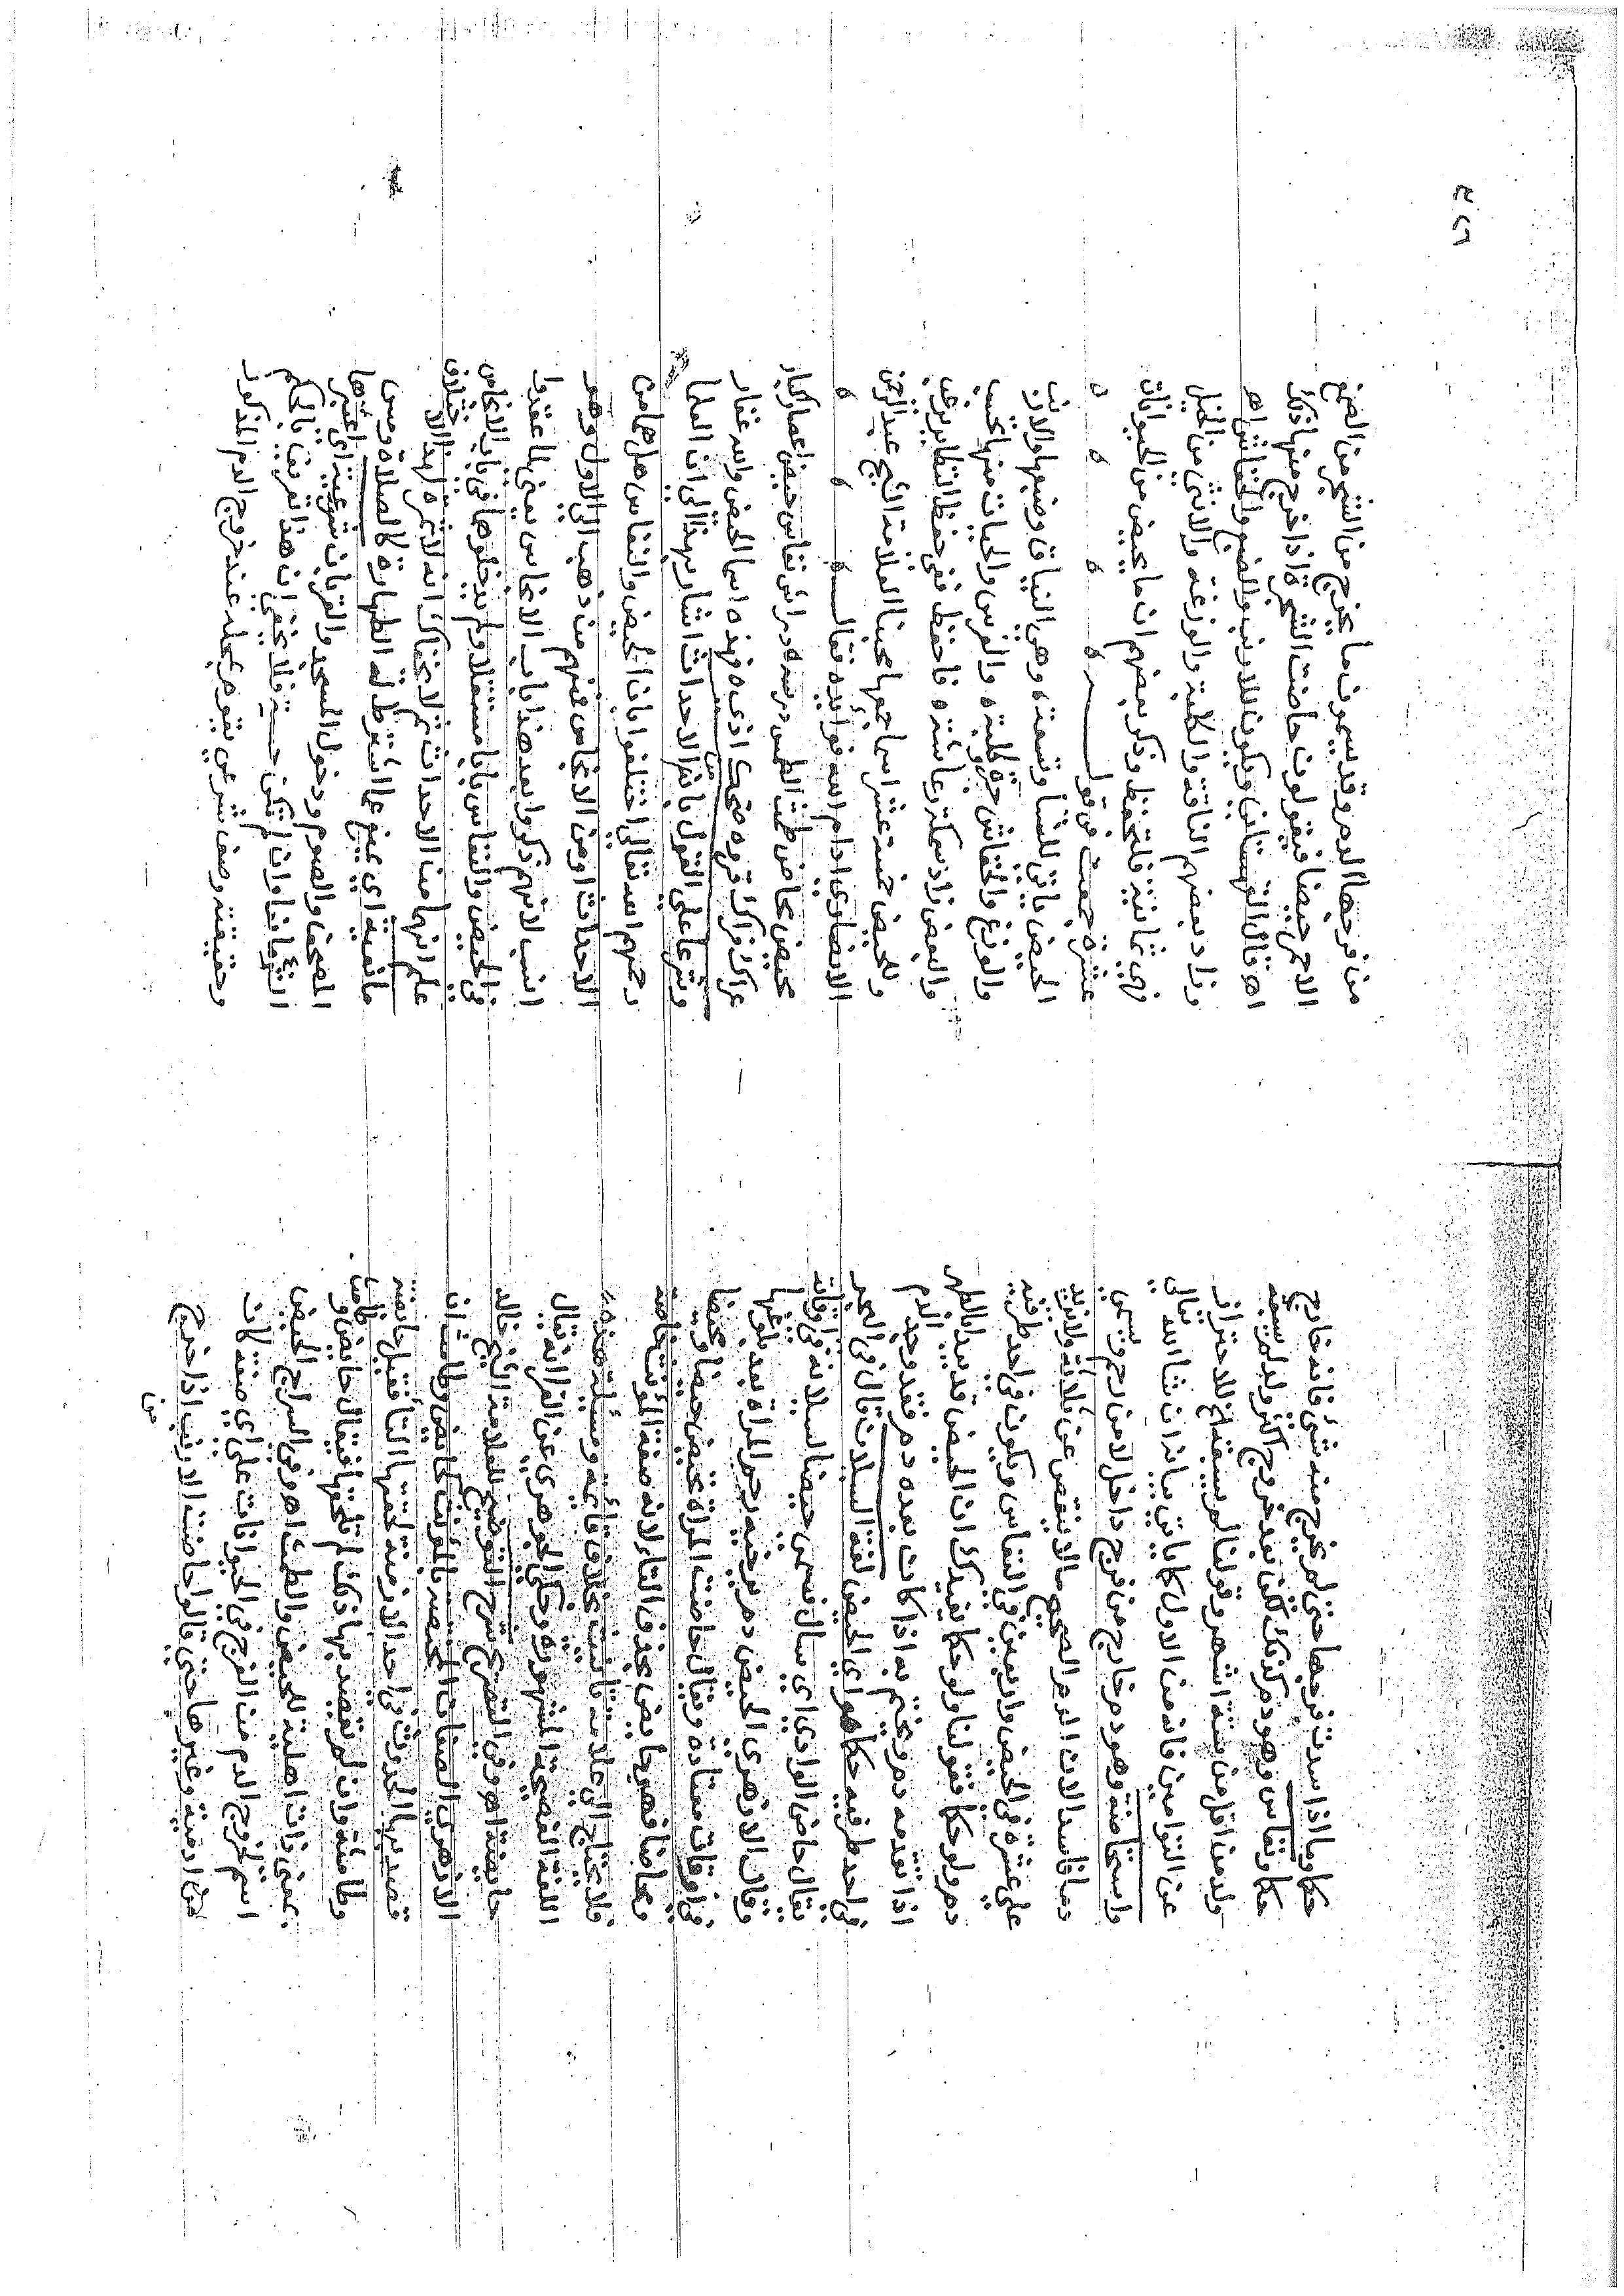 حكما وما اذا سدت فرجها حتى لم يخرج منه شئ فانه خارج
حكما ونفاس وهو دم كذلك لكن بعد خروج اكثر ولد لم يسبقه
ولد من اقل من ستة اشهر وقولنا لم يسبقه الخ للاحتراز
عن التوامين فانه من الاول كما ياتي بيانه ان شا الله تعالى
واستحاضة وهو دم خارج من فرج داخل لا من رحم ويسمى
دما فاسدا لان الدم الصحيح ما لا ينقص عن ثلاثة ولا يزيد
على عشرة في الحيض واربعين في النفاس ويكون في احد طرفيه
دم ولو حكما فقولنا ولو حكما يفيدك ان الحيض قد يبدا بالطهر
اذا تقدمه دم ويختم به اذا كان بعده دم فقد وجد الدم
في احد طرفيه حكما هو اي الحيض لغة السيلان قال في البحر
يقال حاض الوادي اي سال فسمي حيضا لسيلانه في اوقاته
وقال الازهري الحيض دم يرخيه رحم المراة بعد بلوغها
في اوقات معتادة ويقال حاضت المراة تحيض حيضا ومحيضا
ومحاضا فهي حايض بحذف التاء لانه صفة المؤنث خاصة
فلا يحتاج الى علامة تانيث بخلاف قائمة ومسلمة هذه
اللغة الفصيحة المشهورة وحكى الجوهري عن الفرا انه يقال
حايضة اهـ وفي التصريح شرح التوضيح للعلامة الشيخ خالد
الازهري الصفات المختصة بالمؤنث كحايض وطامث ان
قصد بها الحدوث في احد الازمنة لحقتها التا فقيل حايضة
وطامثة وان لم يقصد بها ذلك لم تلحقها فيقال حايض وطامث
بمعنى ذات اهلية للحيض والطمث اهـ وفي السراج الحيض
اسم لخروج الدم من الفرج في الحيوانات على اي صفة كان
من ادمية وغيرها حتى قالوا حاضت الارنب اذا خرج
من
من فرجها الدم وقد يسمون ما يخرج من الشجر من الصمغ
الاحمر حيضا فيقولون حاضت الشجرة اذا خرج منها ذلك
اهـ قال القهستاني ويكون للارنب والضبع والخفاش اهـ
وزاد بعضهم الناقة والكلبة والوزغة والانثى من الخيل
فهي ثمانية فلتحفظ وذكر بعضهم ان ما يحيض من الحيوانات
عشرة جمعت في قوله
الحيض ياتي للنسا وتسعة وهي النياق وضبعها والارنب
والوزغ والخفاش حجرة كلبة والعرس والحيات منها تحسب
والبعض زاد سمكة رعاشة فاحفظ ففي حفظ النظاير يرغب
وللحيض خمسة عشر اسما جمعها محبنا العلامة الشيخ عبد الرحمن
الانصاري ادام الله فوايده فقال
محيض محاض طمث الطمس دراس نفاس حيض اعصار اكبار
عراك فراك قروه ضحك اذى فهذه اسما الحيض والله غفار
وشرعا على القول بانه من الاحداث اشار بهذا الى ان العلما
رحمهم الله تعالى اختلفوا بان الحيض والنفاس هل هما من
الاحداث او من الانجاس فمنهم من ذهب الى الاول وهو
انسب لانهم ذكروا بعد هذا باب الانجاس يعني لما عقدوا
للحيض والنفاس بابا مستقلا ولم يدخلوها في باب الانجاس
علم انهما من الاحداث ثم لا يخفاك انه لا ثمرة لهذا الاختلاف
مانعية اي منع عما اشترط له الطهارة كالصلاة ومس
المصحف والصوم ودخول المسجد والقربان شرعية اي اعتبرها
الشرع مانعا وان لم تكن حسية فلا يخفى ان هذا تعريف بالحكم
وحقيقته وصف شرعي يقوم بمحله عند خروج الدم المذكور